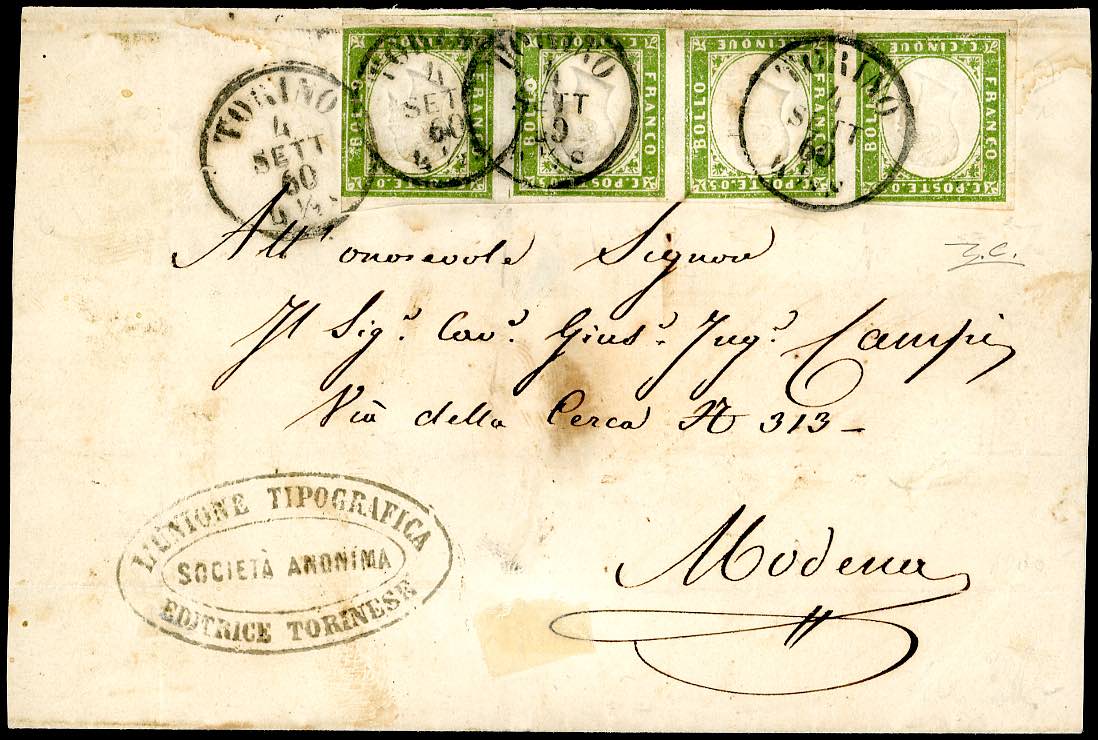 TORINO
4
SETT
60
4 ½ S
TORINO
4
SETT
60
TORINO
4
SETT
60
TORINO
4
SETT
60
C. CINQUE
BOLLO
FRANCO
C. POSTE. 05
C. CINQUE
BOLLO
FRANCO
C. POSTE. 05
C. CINQUE
BOLLO
FRANCO
C. POSTE. 05
C. CINQUE
BOLLO
FRANCO
C. POSTE. 05
All' onorevole Signore
Il Sigr. Cavr. Gius. Ingr. Campi
Via della Cerca N 313 -
Modena
L'UNIONE TIPOGRAFICA
SOCIETÀ ANONIMA
EDITRICE TORINESE